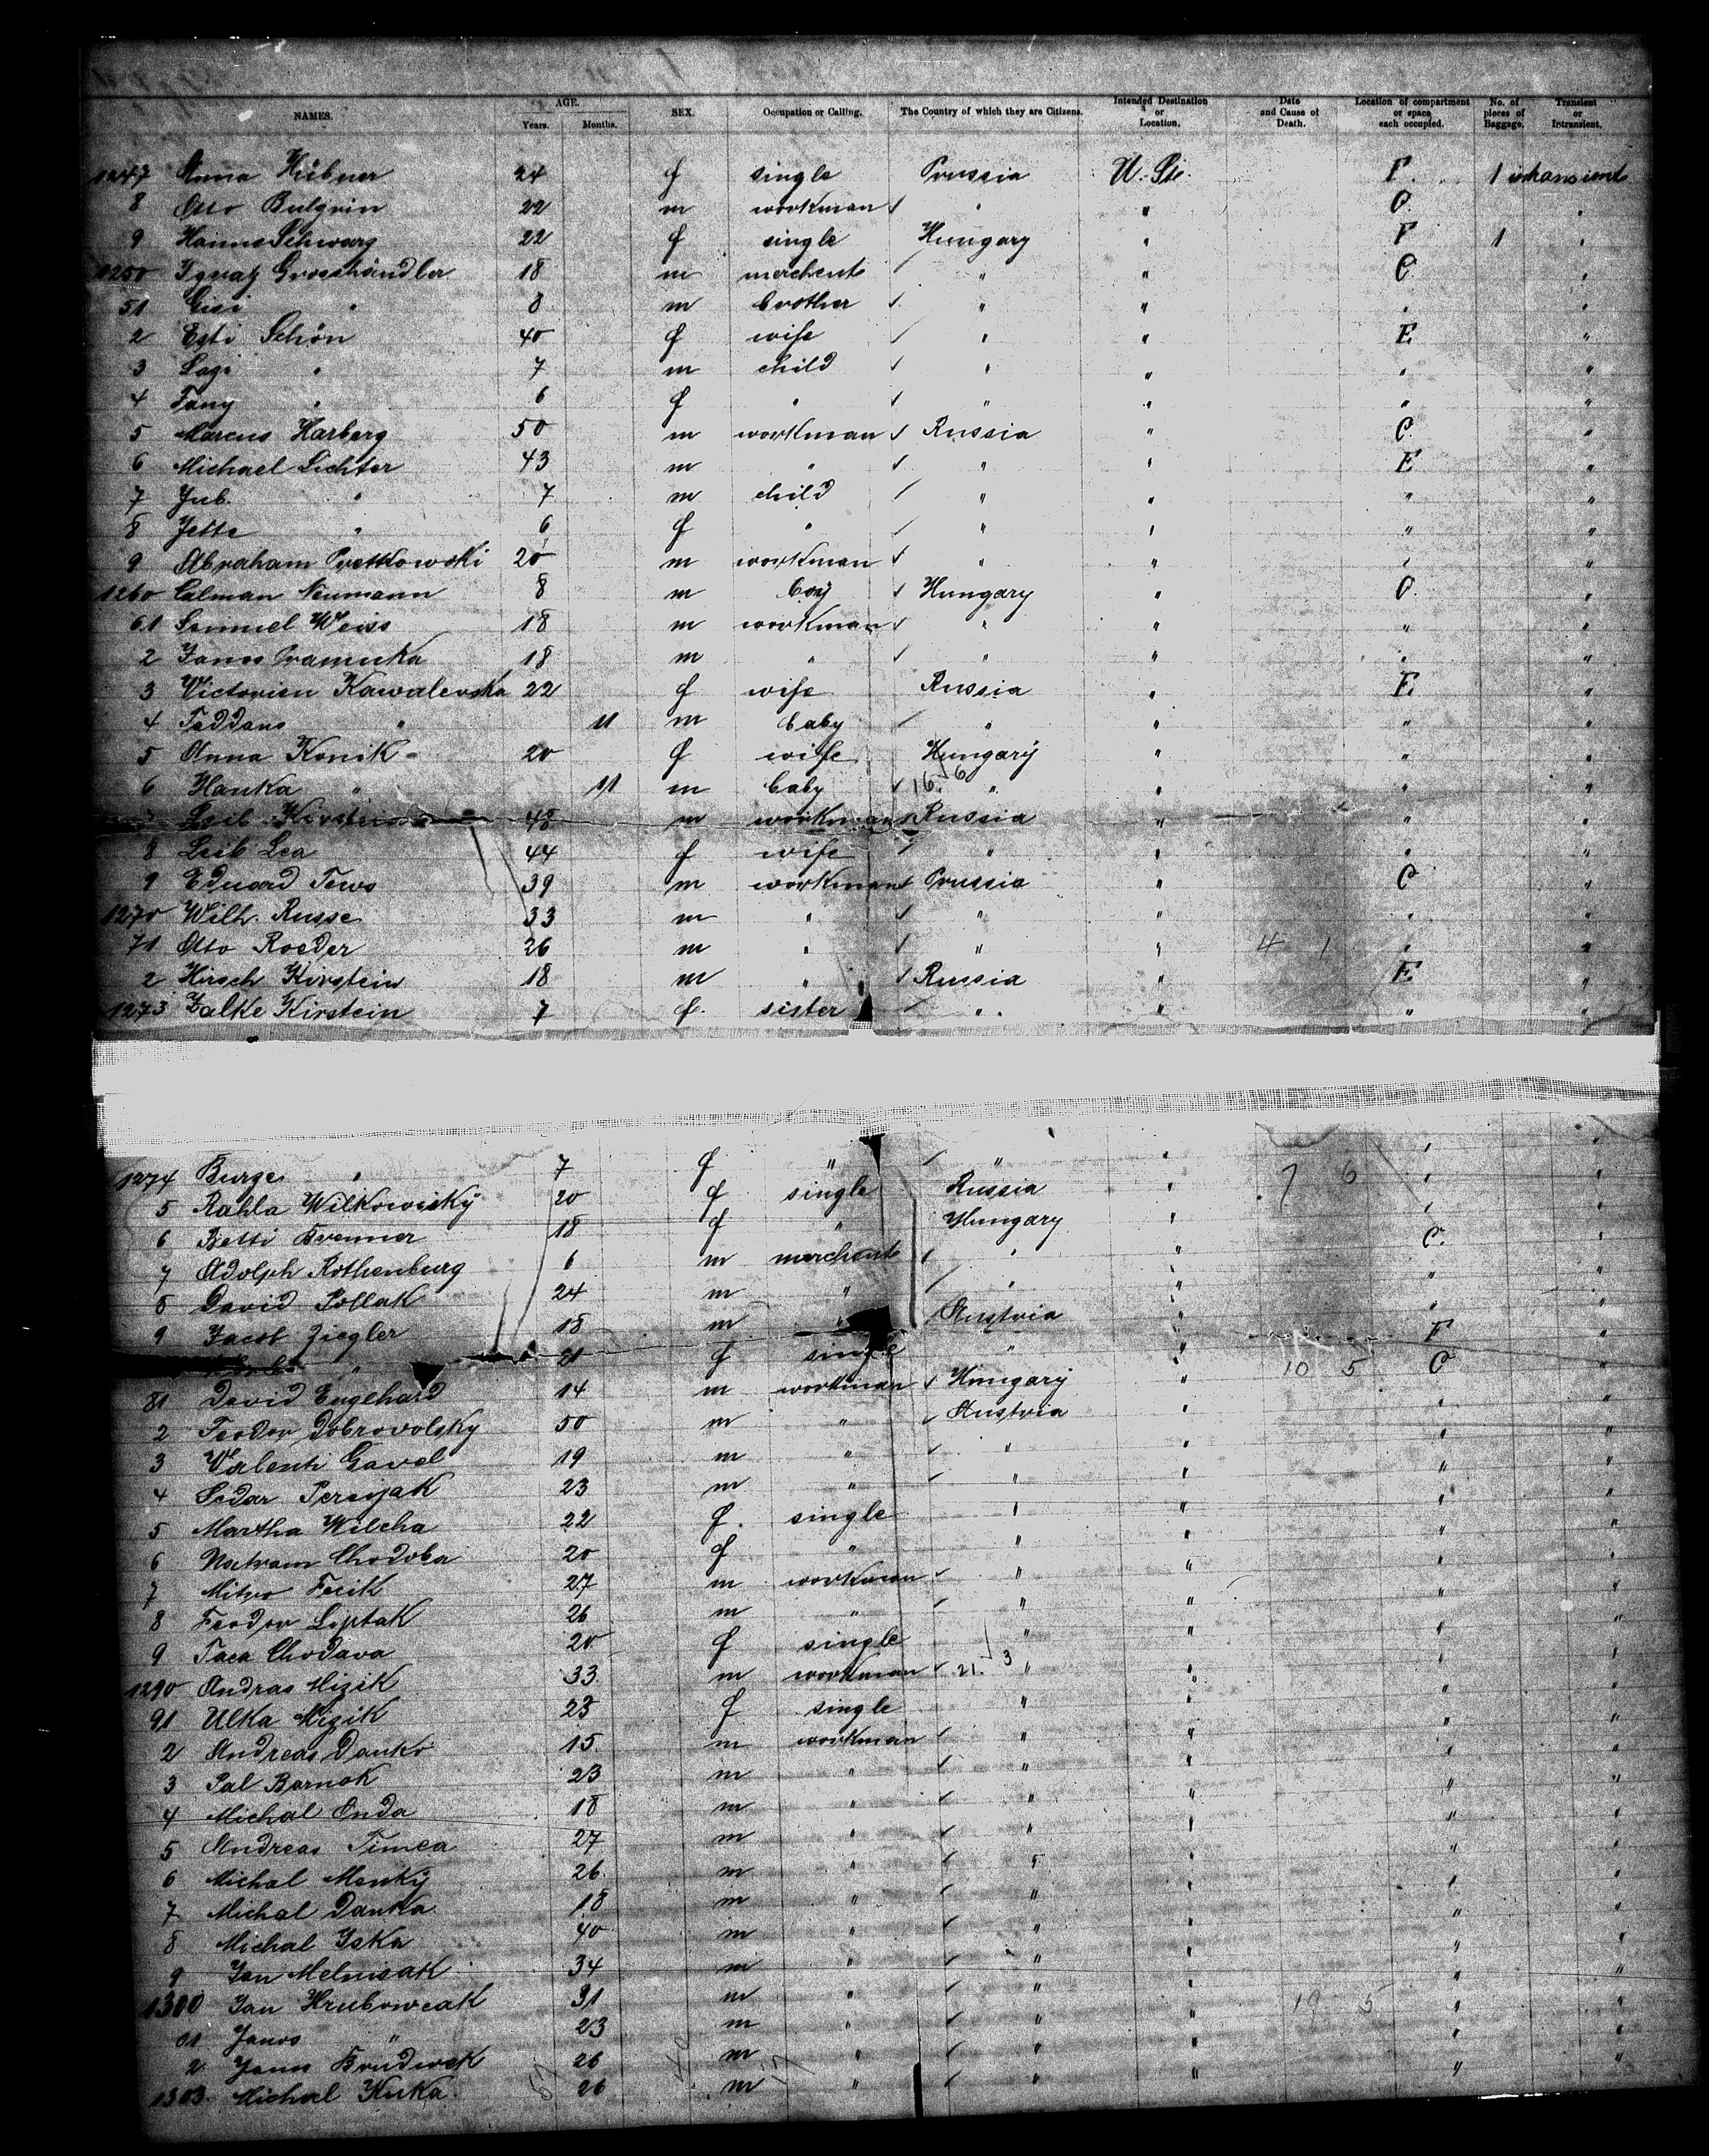 NAMES. AGE. Years. Months. SEX. Occupation or Calling. The Country of which they are Citizens. Intended Destination or Location. Date and Cause of Death. Location of compartment or space each occupied. No. of pieces of Baggage. Transient or Intransient.
1247 Anna Hübner 24 f single Prussia U. Sts. F. 1 intransient
8 Otto Bulgrin 22 m workman " " C. "
9 Hanna Schwarz 22 f single Hungary " F 1 "
1250 Ignatz Grosshändler 18 m merchent " " C "
51 Gisi " 8 m brother " " " "
2 Esti Schön 40 f wife " " E "
3 Lazi " 7 m child " " " "
4 Fany " 6 f " " " " "
5 Marcus Harberg 50 m workman Russia " C. "
6 Michael Lichter 43 m " " " E "
7 Jub. " 7 m child " " " "
8 Jette " 6 f " " " " "
9 Abraham Prettkowski 20 m workman " " " "
1260 Calman Neumann 8 m boy Hungary " C. "
61 Samuel Weiss 18 m workman " " " "
2 Janos Pramuka 18 m " " " " "
3 Victorien Kawalevska 22 f wife Russia " E "
4 Taddaus " 11 m baby " " " "
5 Anna Konik 20 f wife Hungary " " "
6 Hanka " 11 m baby 16 6 " " " "
7 Leib Kirstein 48 m workman Russia " " "
8 Leib Lea 44 f wife " " " "
9 Eduard Tews 39 m workman Prussia " C "
1270 Wilh. Russe 33 m " " " " "
71 Otto Roeder 26 m " " " 4 1 " "
2 Hirsch Kirstein 18 m " Russia " E "
1273 Zalke Kirstein 7 f. sister " " " "
1274 Burge " 7 f " " " " "
5 Rahla Wilkowisky 20 f single Russia " 7 6 " "
6 Betti Brenner 18 f " Hungary " " "
7 Adolph Rothenburg 6 m merchent " " C. "
8 David Pollak 24 m " " " " "
9 Jacob Ziegler 18 m " Austria " " "
" 21 f single " " F "
81 David Engelhard 14 m workman Hungary " 10 5 C "
2 Feodor Dobrovolsky 50 m " Austria " " "
3 Valenti Gavel 19 m " " " " "
4 Fedar Persijak 23 m " " " " "
5 Martha Wilcha 22 f. single " " " "
6 Natram Chodoba 20 f " " " " "
7 Mitro Fecik 27 m workman " " " "
8 Feodor Liptak 26 m " " " " "
9 Taca Chodava 20 f single " " " "
1290 Andras Mizik 33 m workman 21 3 " " " "
91 Ulka Mizik 23 f single " " " "
2 Andreas Danko 15 m workman " " " "
3 Pal Barnak 23 m " " " " "
4 Michal Onda 18 m " " " " "
5 Andreas Timca 27 m " " " " "
6 Michal Menky 26 m " " " " "
7 Michal Danka 18 m " " " " "
8 Michal Iska 40 m " " " " "
9 Jan Melnisak 34 m " " " " "
1300 Jan Hrubowcak 31 m " " " 19 5 " "
01 Janos " 23 m " " " " "
2 Janos Brudwak 26 m " " " " "
1303 Michal Kuka 26 m " " " " "